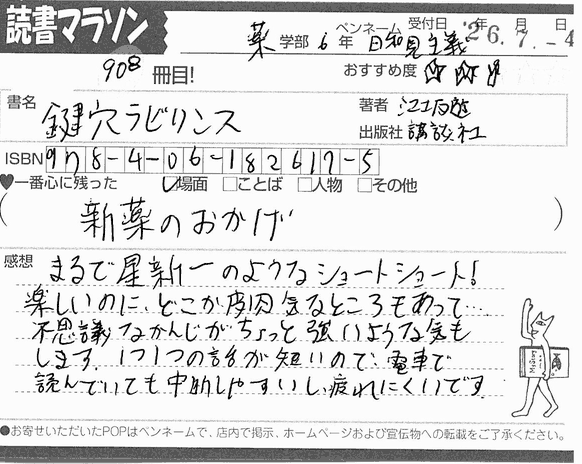 読書マラソン
薬 学部 6 年 ペンネーム 日和見主義 受付日 '26.7.-4 年 月 日
908 冊目! おすすめ度 ☆☆☆
書名 鍵穴ラビリンス 著者 江坂遊
出版社 講談社
ISBN 978-4-06-182617-5
♥一番心に残った ☑場面 □ことば □人物 □その他
( 新薬のおかげ )
感想 まるで星新一のようなショートショート!
楽しいのに、どこか皮肉気なところもあって…
不思議なかんじがちょっと強いような気も
します。1つ1つの話が短いので、電車で
読んでいても中断しやすいし、疲れにくいです。
●お寄せいただいたPOPはペンネームで、店内で掲示、ホームページおよび宣伝物への転載をご了承ください。